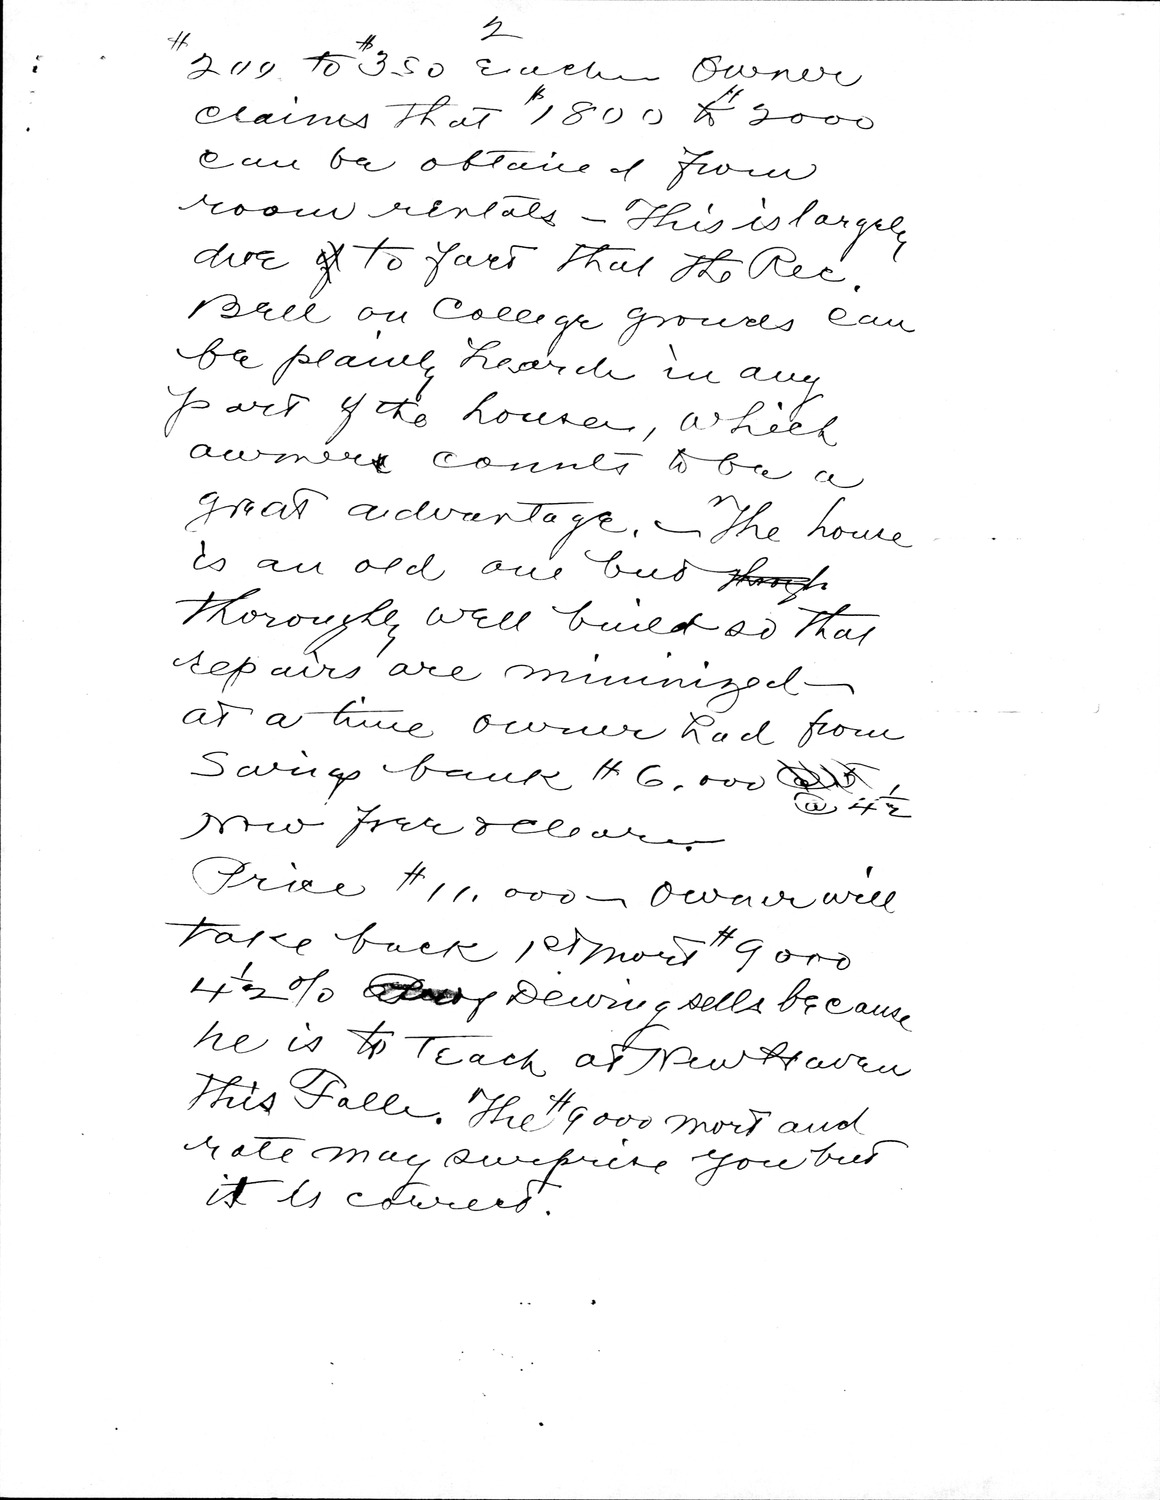 2
$200 to $350 each Owner
claims that $1800 to $2000
can be obtained from
room rentals – This is largely
due to fact that the Rec.
Bell on College grounds can
be plainly heard in any
part of the house, which
owner counts to be a
great advantage. – The house
is an old one but though
thoroughly well build so that
repairs are minimized –
at a time owner had from
Savings bank #6,000 @ 4½
Now free & clear.
Price #11,000 – Owner will
take back 1st mort #9000
4½% Dewing sells because
he is to Teach at New Haven
this Fall. The #9000 mort and
rate may surprise you but
it is correct.